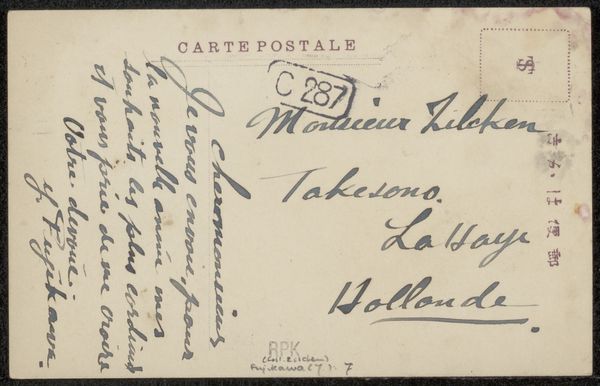 CARTE POSTALE
C 287
Monsieur Zilcken
Takesono.
La Haye
Hollande.
きかは便郵
Cher monsieur
Je vous envoie, pour
la nouvelle année mes
souhaits les plus cordiaux
et vous prie de me croire
Votre dévoué:
Y. Fujikawa.
RPK
(coll. Zilcken)
Fujikawa (Y.): 7